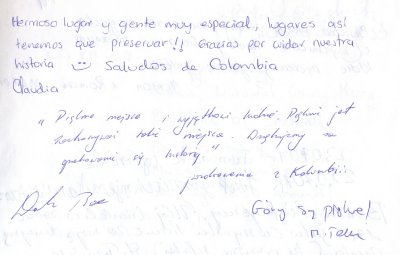 Hermoso lugar y gente muy especial, lugares así
tenemos que preservar!! Gracias por cuidar nuestra
historia Saludos de Colombia
Claudia
"Piękne miejsce i wyjątkowi ludzie. Pięknie jest
zachowywać takie miejsca. Dziękujemy za
opiekowanie się historią."
pozdrowienia z Kolumbii
Góry są piękne!